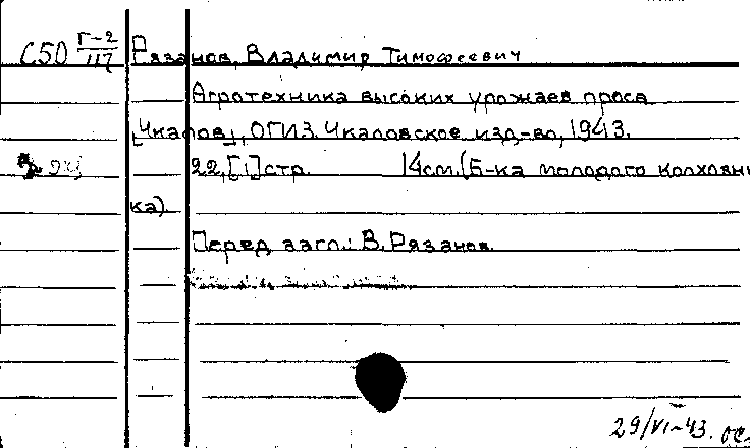 С50 Г-2/117 Рязанов, Владимир Тимофеевич
Агротехника высоких урожаев проса
[Чкалов], ОГИЗ. Чкаловское изд-во, 1943.
22,[1]стр. 14см.(Б-ка молодого колхозни
ка).
Перед загл.: В.Рязанов.
29/VI-43.